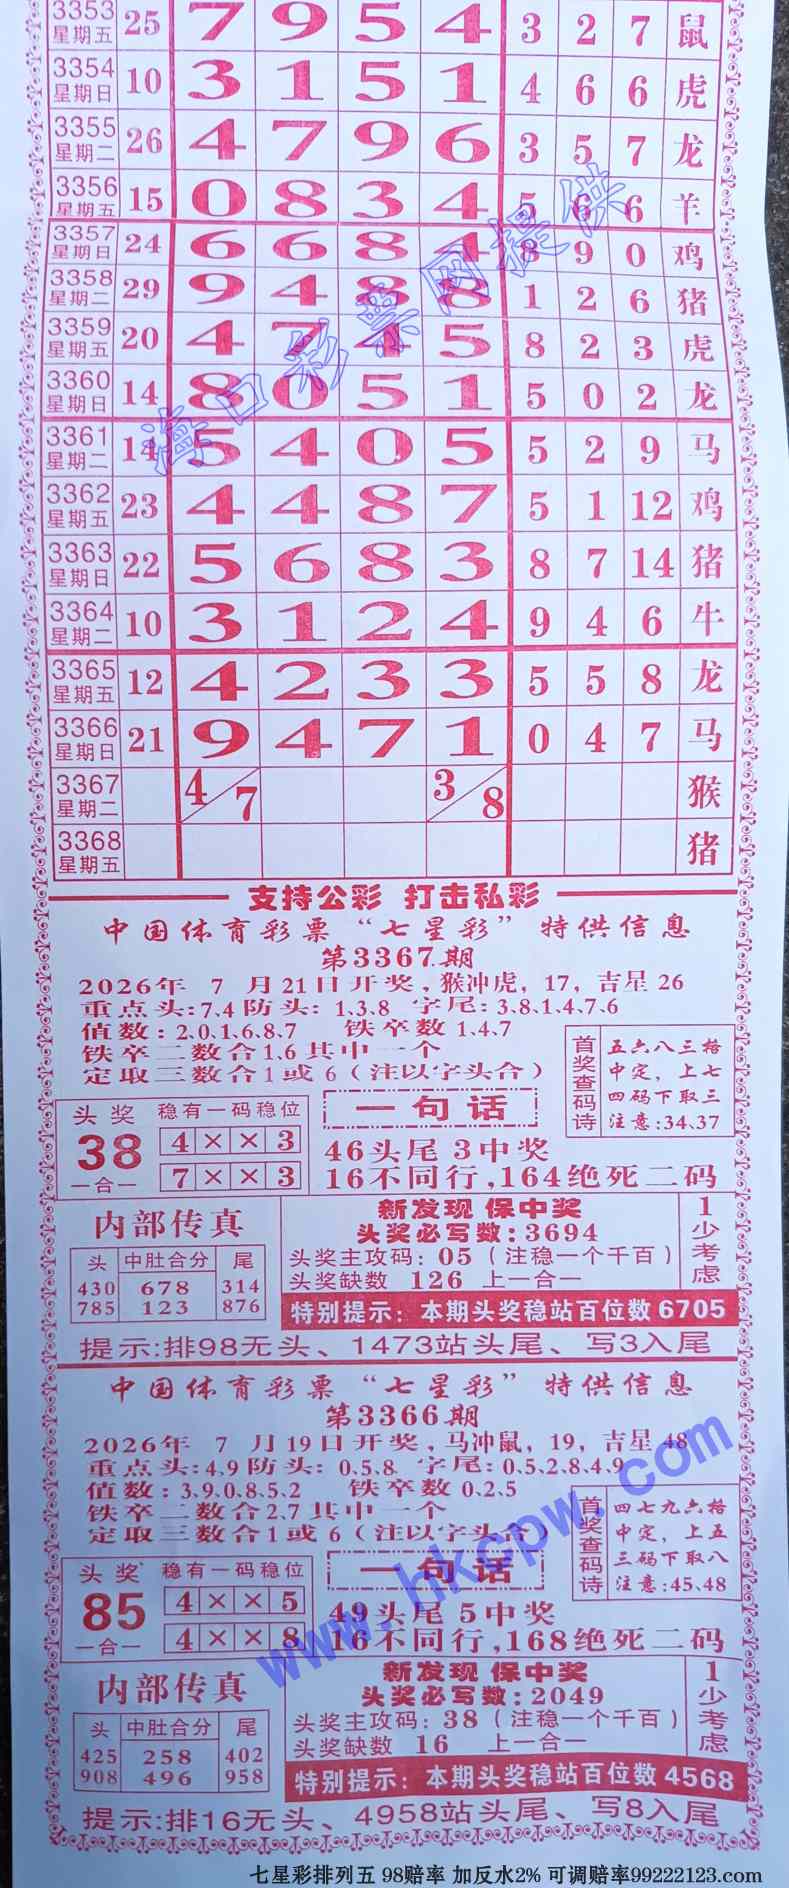 3353 星期五 25 7 9 5 4 3 2 7 鼠
3354 星期日 10 3 1 5 1 4 6 6 虎
3355 星期二 26 4 7 9 6 3 5 7 龙
3356 星期五 15 0 8 3 4 5 6 6 羊
3357 星期日 24 6 6 8 4 8 9 0 鸡
3358 星期二 29 9 4 8 8 1 2 6 猪
3359 星期五 20 4 7 4 5 8 2 3 虎
3360 星期日 14 8 0 5 1 5 0 2 龙
3361 星期二 14 5 4 0 5 5 2 9 马
3362 星期五 23 4 4 8 7 5 1 12 鸡
3363 星期日 22 5 6 8 3 8 7 14 猪
3364 星期二 10 3 1 2 4 9 4 6 牛
3365 星期五 12 4 2 3 3 5 5 8 龙
3366 星期日 21 9 4 7 1 0 4 7 马
3367 星期二 4/7 3/8 猴
3368 星期五 猪
海口彩票网提供
支持公彩 打击私彩
中国体育彩票“七星彩”特供信息
第3367期
2026年 7 月21日开奖,猴冲虎,17,吉星 26
重点头:7、4 防头:1、3、8 字尾:3、8、1、4、7、6
值数:2、0、1、6、8、7 铁卒数 1、4、7
铁卒二数合1、6其中一个
定取三数合1或6(注以字头合)
首奖查码诗
五六八三格
中定,上七
四码下取三
注意:34、37
头奖 稳有一码稳位
38 4 × × 3
一合一 7 × × 3
一句话
46头尾 3中奖
16不同行,164绝死二码
内部传真
头 中肚合分 尾
430 678 314
785 123 876
新发现 保中奖
头奖必写数:3694
头奖主攻码:05(注稳一个千百)
头奖缺数 126 上一合一
1少考虑
特别提示:本期头奖稳站百位数6705
提示:排98无头、1473站头尾、写3入尾
中国体育彩票“七星彩”特供信息
第3366期
2026年 7 月19日开奖,马冲鼠,19,吉星 48
重点头:4、9 防头:0、5、8 字尾:0、5、2、8、4、9
值数:3、9、0、8、5、2 铁卒数 0、2、5
铁卒二数合2、7其中一个
定取三数合1或6(注以字头合)
首奖查码诗
四七九六格
中定,上五
三码下取八
注意:45、48
头奖 稳有一码稳位
85 4 × × 5
一合一 4 × × 8
一句话
49头尾 5中奖
16不同行,168绝死二码
www.hkcpw.com
内部传真
头 中肚合分 尾
425 258 402
908 496 958
新发现 保中奖
头奖必写数:2049
头奖主攻码:38(注稳一个千百)
头奖缺数 16 上一合一
1少考虑
特别提示:本期头奖稳站百位数4568
提示:排16无头、4958站头尾、写8入尾
七星彩排列五 98赔率 加反水2% 可调赔率99222123.com